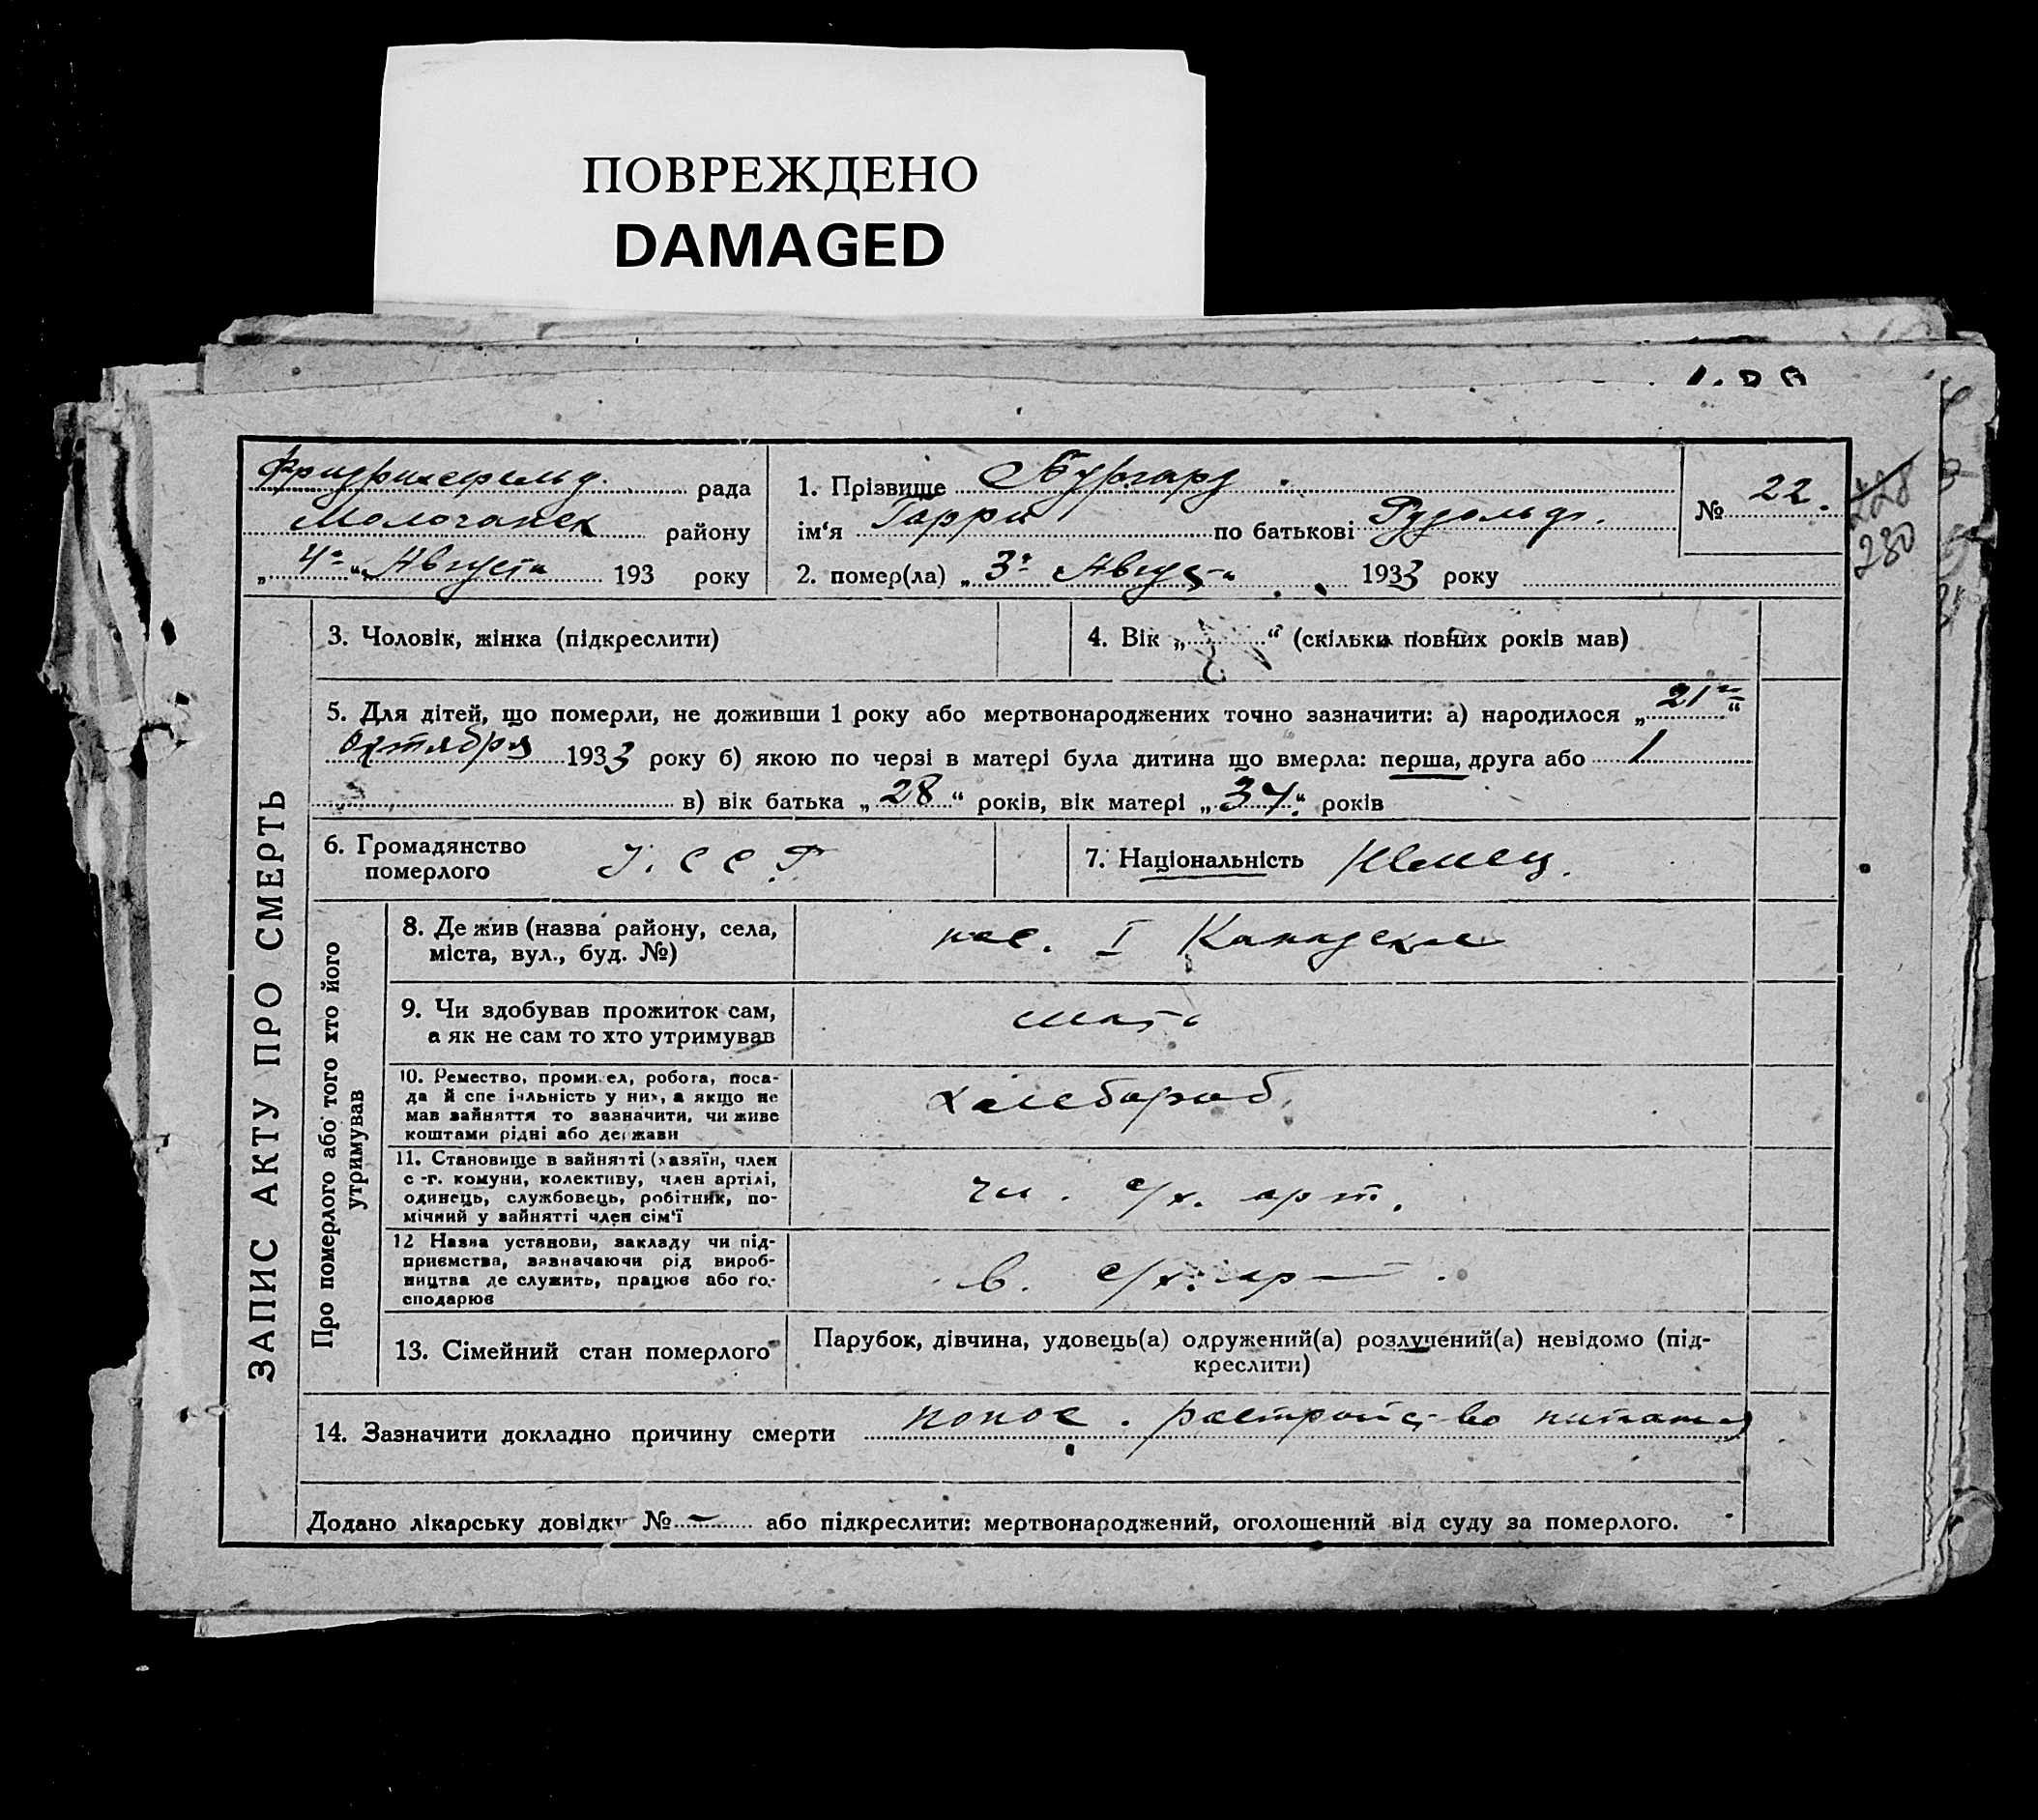 ПОВРЕЖДЕНО
DAMAGED
Фридрихсфельд. рада
Молочанск району
„4го“ Августа 193 року
1. Прізвище Бургард
ім‘я Гарри по батькові Рудольф.
2. помер(ла) „3го Августа 1933 року
№ 22.
228
230
3. Чоловік, жінка (підкреслити)
4. Вік „ “ (скільки повних років мав)
5. Для дітей, що померли, не доживши 1 року або мертвонароджених точно зазначити: а) народилося „21го“
Октября 1933 року б) якою по черзі в матері була дитина що вмерла: перша, друга або 1
в) вік батька „28“ років, вік матері „37“ років
6. Громадянство
померлого
У.ССР
7. Національність Немец.
8. Де жив (назва району, села,
міста, вул., буд. №)
пос. I
9. Чи здобував прожиток сам,
а як не сам то хто утримував
мать
10. Ремество, промисел, робота, поса-
да й спеціяльність у них, а якщо не
мав зайняття то зазначити, чи живе
коштами рідні або держави
хлебороб.
11. Становище в зайнятті (хазяїн, член
с-г. комуни, колективу, член артілі,
одинець, службовець, робітник, по-
мічний у зайнятті член сім‘ї
чл. с/х. арт.
12 Назва установи, закладу чи під-
приємства, зазначаючи рід вироб-
ництва де служить, працює або го-
сподарює
в. с/х. арт
13. Сімейний стан померлого
Парубок, дівчина, удовець(а) одружений(а) розлучений(а) невідомо (під-
креслити)
14. Зазначити докладно причину смерти понос. растройство питания
Додано лікарську довідку № – або підкреслити: мертвонароджений, оголошений від суду за померлого.
ЗАПИС АКТУ ПРО СМЕРТЬ
Про померлого або того хто його
утримував